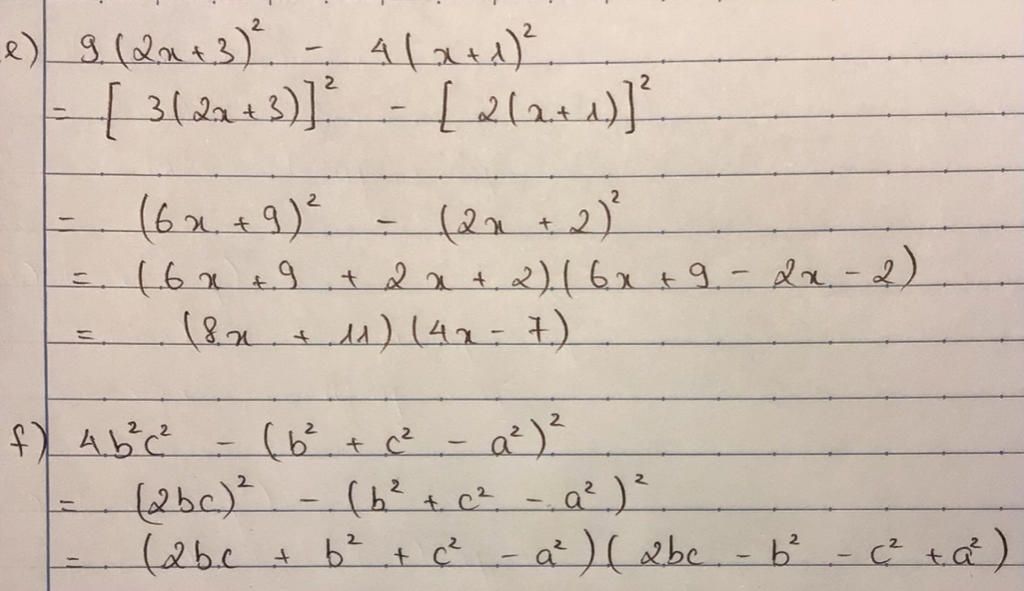 e) 9(2x+3)² - 4(x+1)²
= [3(2x+3)]² - [2(x+1)]²
= (6x+9)² - (2x+2)²
= (6x+9+2x+2)(6x+9-2x-2)
= (8x+11)(4x-7)
f) 4b²c² - (b²+c²-a²)²
= (2bc)² - (b²+c²-a²)²
= (2bc+b²+c²-a²)(2bc-b²-c²+a²)